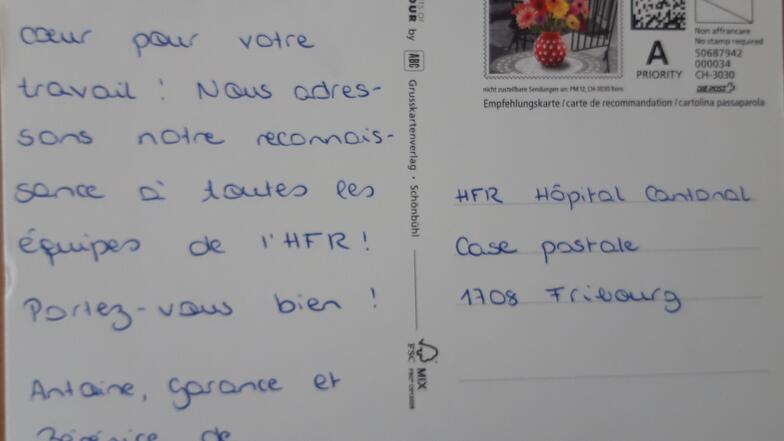 cœur pour votre
travail ! Nous adres-
sons notre reconnais-
sance à toutes les
équipes de l'HFR !
Portez-vous bien !
Antoine, Garance et
Bérénice de
OUR by ABC Grusskartenverlag · Schönbühl
MIX
FSC
A
PRIORITY
Non affrancare
No stamp required
50687942
000034
CH-3030
DIE POST
nicht zustellbare Sendungen an: PM 12, CH-3030 Bern
Empfehlungskarte / carte de recommandation / cartolina passaparola
HFR Hôpital Cantonal
Case postale
1708 Fribourg